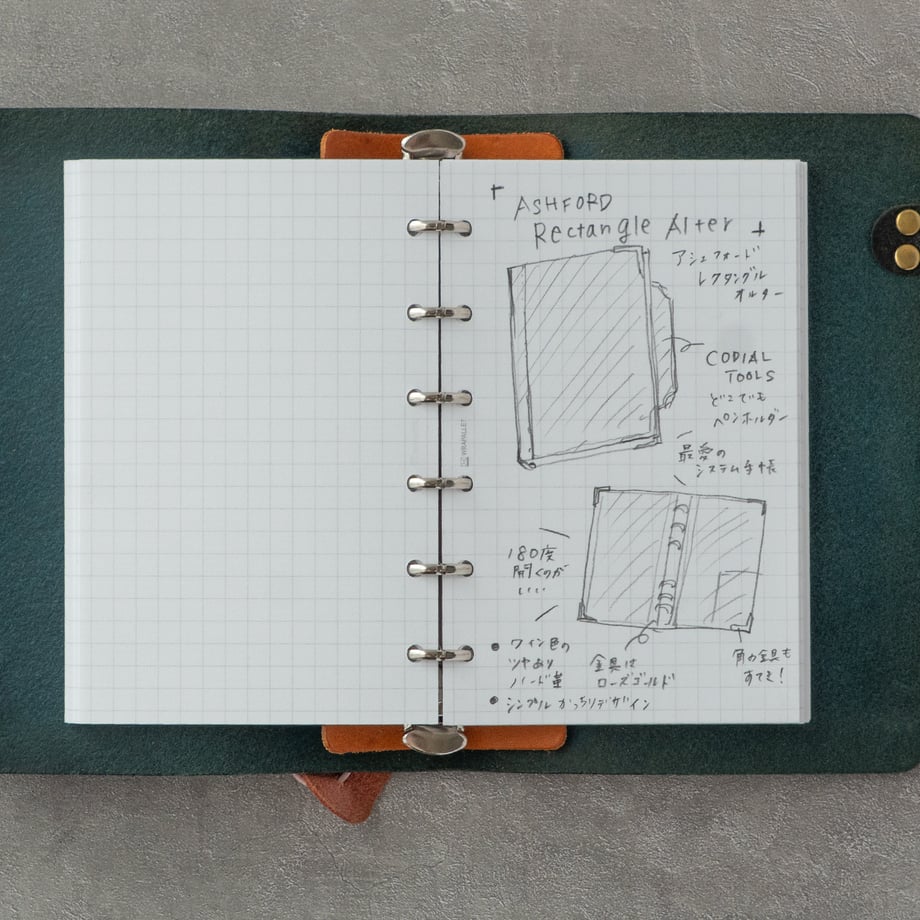 「ASHFORD
Rectangle Alter 」
アシュフォード
レクタングル
オルター
CODIAL
TOOLS
どこでも
ペンホルダー
最愛の
システム手帳
180度
開くのが
いい
● ワイン色の
ツヤあり
ハード革
金具は
ローズゴールド
角の金具も
すてき!
● シンプル かっちりデザイン
WIRAPALLET